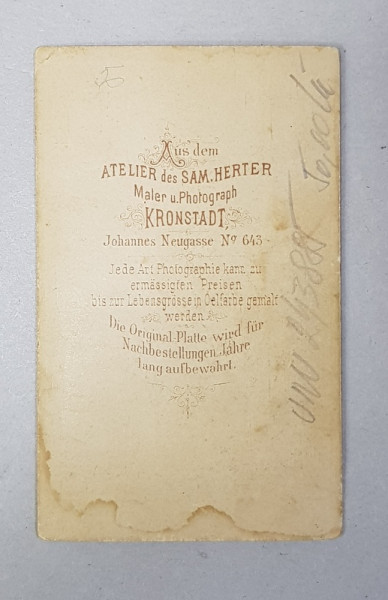 Aus dem
ATELIER des SAM. HERTER
Maler u. Photograph
KRONSTADT
Johannes Neugasse No 643
Jede Art Photographie kann zu
ermässigten Preisen
bis zur Lebensgrösse in Oelfarbe gemalt
werden.
Die Original-Platte wird für
Nachbestellungen Jahre
lang aufbewahrt.